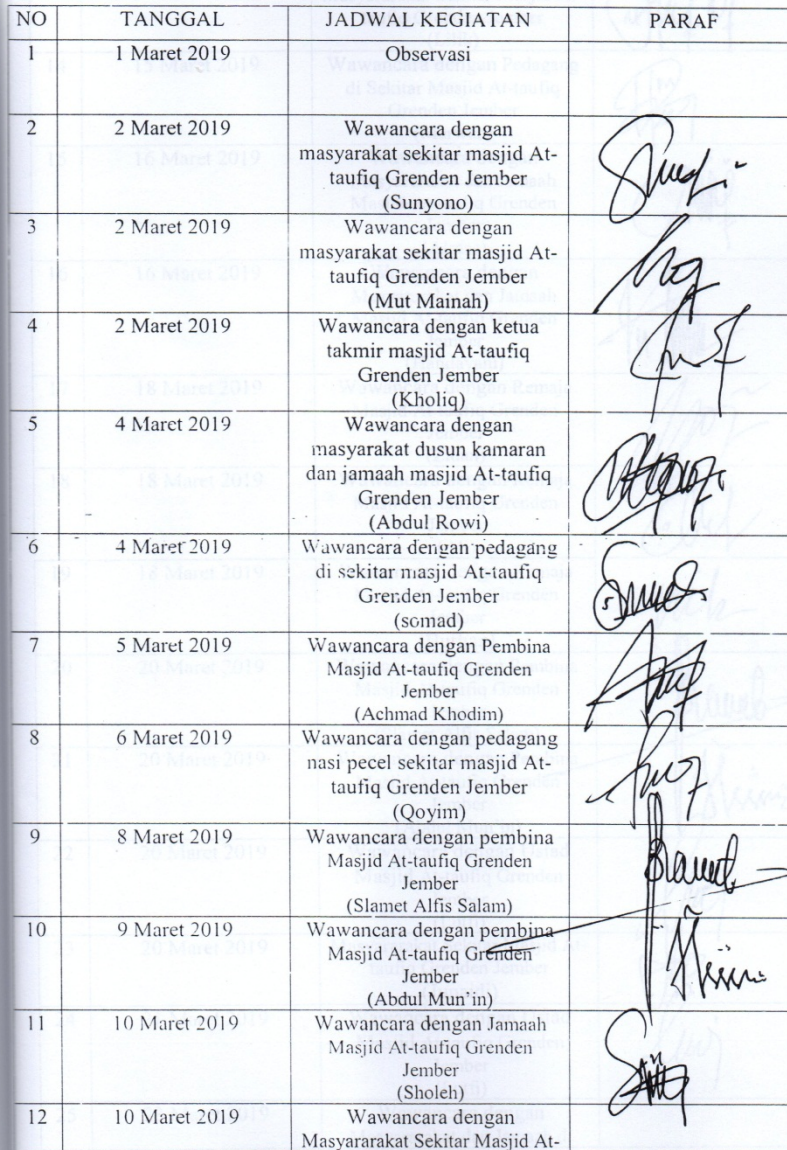 NO TANGGAL JADWAL KEGIATAN PARAF
1 1 Maret 2019 Observasi
2 2 Maret 2019 Wawancara dengan
masyarakat sekitar masjid At-
taufiq Grenden Jember
(Sunyono)
3 2 Maret 2019 Wawancara dengan
masyarakat sekitar masjid At-
taufiq Grenden Jember
(Mut Mainah)
4 2 Maret 2019 Wawancara dengan ketua
takmir masjid At-taufiq
Grenden Jember
(Kholiq)
5 4 Maret 2019 Wawancara dengan
masyarakat dusun kamaran
dan jamaah masjid At-taufiq
Grenden Jember
(Abdul Rowi)
6 4 Maret 2019 Wawancara dengan pedagang
di sekitar masjid At-taufiq
Grenden Jember
(somad)
7 5 Maret 2019 Wawancara dengan Pembina
Masjid At-taufiq Grenden
Jember
(Achmad Khodim)
8 6 Maret 2019 Wawancara dengan pedagang
nasi pecel sekitar masjid At-
taufiq Grenden Jember
(Qoyim)
9 8 Maret 2019 Wawancara dengan pembina
Masjid At-taufiq Grenden
Jember
(Slamet Alfis Salam)
10 9 Maret 2019 Wawancara dengan pembina
Masjid At-taufiq Grenden
Jember
(Abdul Mun'in)
11 10 Maret 2019 Wawancara dengan Jamaah
Masjid At-taufiq Grenden
Jember
(Sholeh)
12 10 Maret 2019 Wawancara dengan
Masyararakat Sekitar Masjid At-